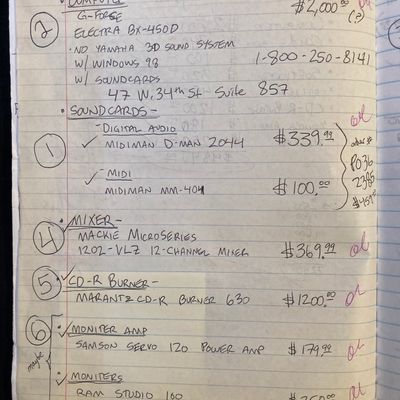 COMPUTER
② G-FORCE $2,000.00 (?)
ELECTRA BX-450D
• NO YAMAHA 3D SOUND SYSTEM
W/ WINDOWS 98 1-800-250-8141
W/ SOUNDCARDS
47 W. 34th St Suite 857
• SOUNDCARDS - ol
- DIGITAL AUDIO
① ✓ MIDIMAN D-MAN 2044 $339.99
order #
PO36
2385
$459.00
- MIDI
✓ MIDIMAN MM-401 $100.00
④ ✓ MIXER -
MACKIE MICROSERIES
1202-VLZ 12-CHANNEL MIXER $369.99 ol
⑤ ✓ CD-R BURNER -
MARANTZ CD-R BURNER 630 $1200.00 ol
⑥ ✓ MONITER AMP
SAMSON SERVO 120 POWER AMP $179.99 ol
maybe
✓ MONITERS
RAM STUDIO 100